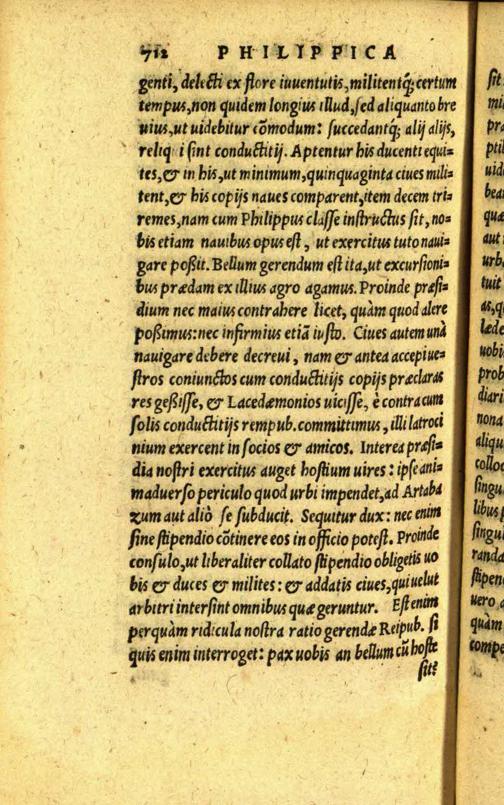 712 PHILIPPICA
genti, delecti ex flore iuuentutis, militentq́; certum
tempus, non quidem longius illud, sed aliquanto bre
uius, ut uidebitur cōmodum: succedantq́; alij alijs,
reliq i sint conductitij. Aptentur his ducenti equi=
tes, & in his, ut minimum, quinquaginta ciues mili=
tent, & his copijs naues comparent, item decem tri=
remes, nam cum Philippus classe instructus sit, no=
bis etiam nauibus opus est, ut exercitus tuto naui=
gare poßit. Bellum gerendum est ita, ut excursioni=
bus prædam ex illius agro agamus. Proinde præsi=
dium nec maius contrahere licet, quàm quod alere
poßimus: nec infirmius etiā iusto. Ciues autem unà
nauigare debere decreui, nam & antea accepi ue=
stros coniunctos cum conductitijs copijs præclaras
res geßisse, & Lacedæmonios uicisse, è contra cum
solis conductitijs rempub. committimus, illi latroci
nium exercent in socios & amicos. Interea præsi=
dia nostri exercitus auget hostium uires: ipse ani=
maduerso periculo quod urbi impendet, ad Artaba
zum aut aliò se subducit. Sequitur dux: nec enim
sine stipendio cōtinere eos in officio potest. Proinde
consulo, ut liberaliter collato stipendio obligetis uo
bis & duces & milites: & addatis ciues, qui uelut
arbitri intersint omnibus quæ geruntur. Est enim
perquàm ridicula nostra ratio gerendæ Reipub. si
quis enim interroget: pax uobis an bellum cū hoste
sit?